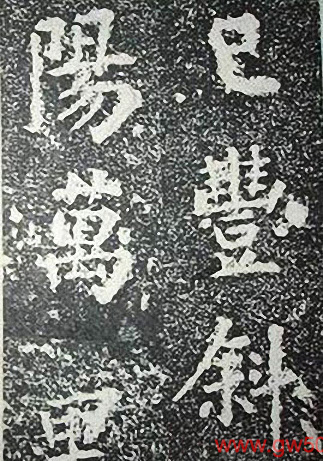 已豐斜
陽萬里
www.gw50